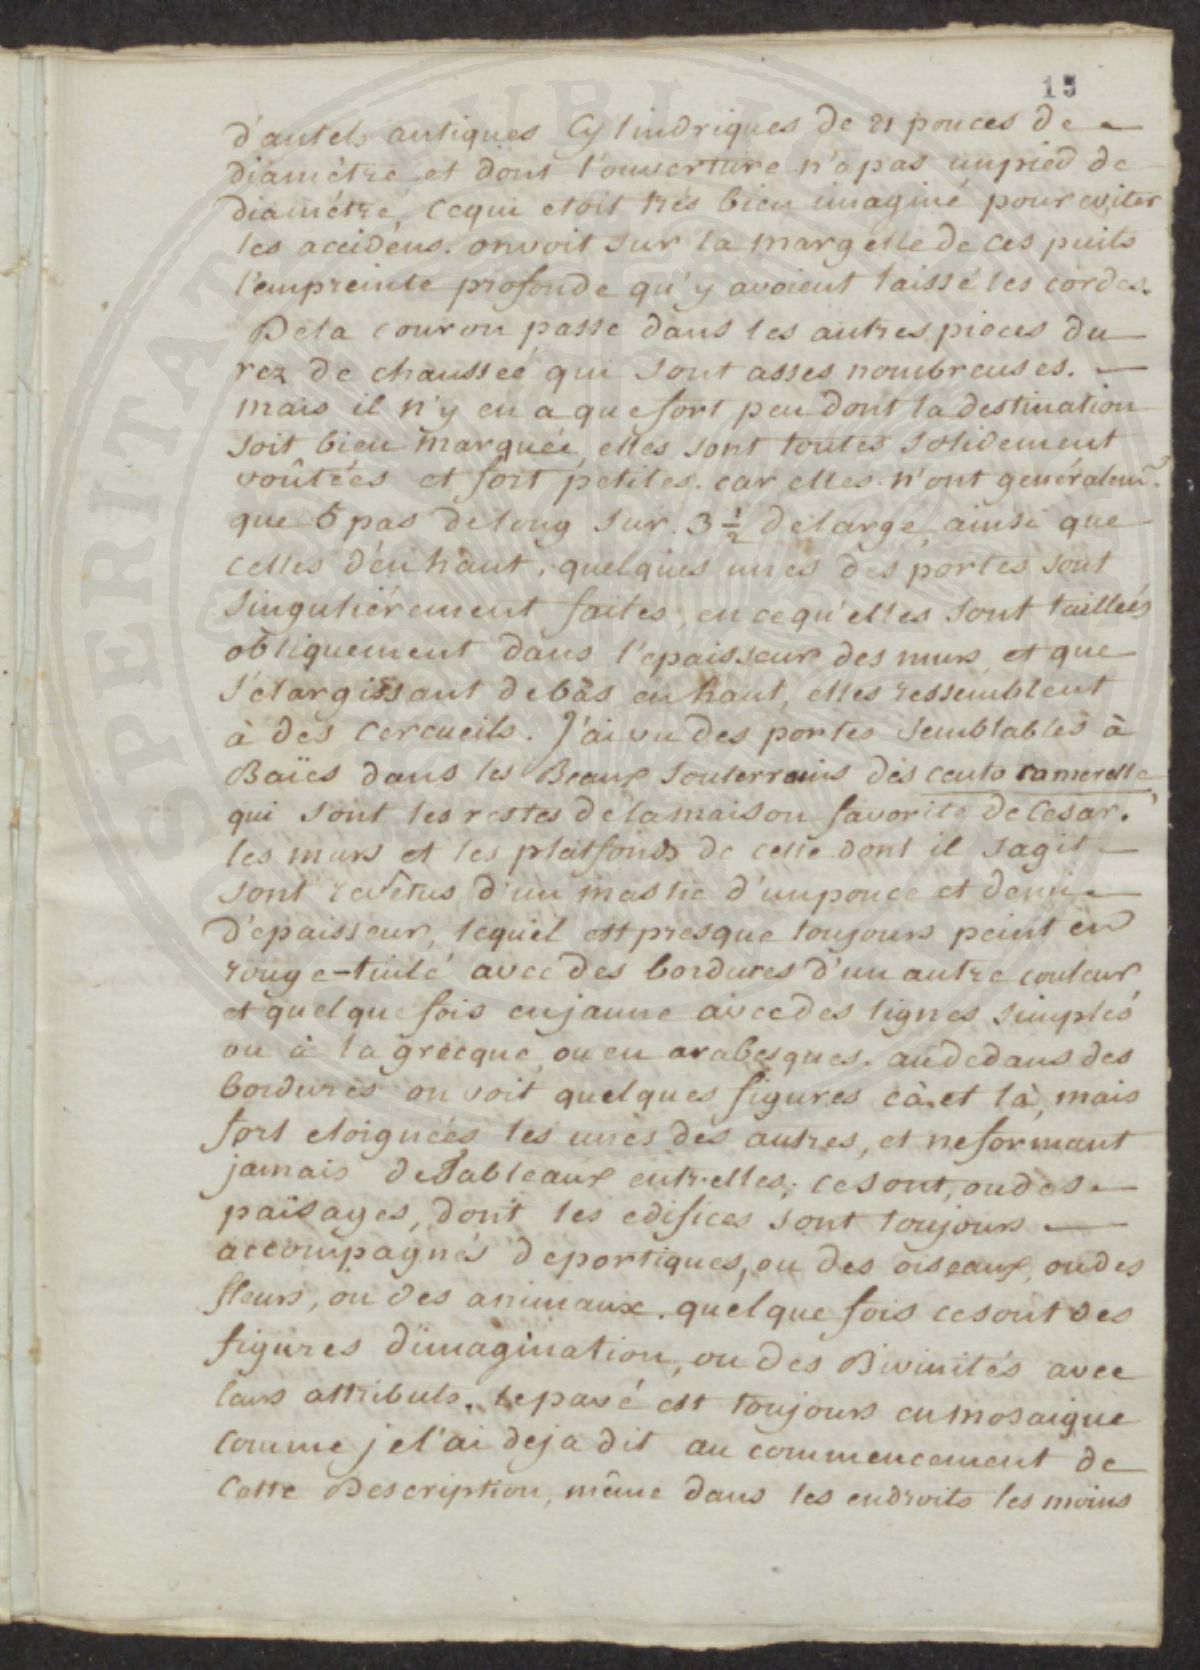 15
d'autels antiques Cylindriques de 21 pouces de
diamétre et dont l'ouverture n'a pas un pied de
diamétre, ce qui etoit trés bien imaginé pour eviter
les accidens. on voit sur la margelle de ces puits
l'empreinte profonde qu'y avoient laissé les cordes.
De la cour on passe dans les autres pieces du
rez de chausseé qui sont asses nombreuses.
mais il n'y en a que fort peu dont la destination
soit bien marqueé, elles sont toutes solidement
voûteés et fort petites. car elles n'ont généralem.t
que 5 pas de long sur 3 ½ de large, ainsi que
celles d'en haut. quelques unes des portes sont
singuliérement faites, en ce qu'elles sont tailleés
obliquement dans l'epaisseur des murs, et que
s'elargissant de bàs en haut, elles ressemblent
à des cercueils. J'ai vu des portes semblables à
Baïes dans les Beaux souterrains des cento camerelle
qui sont les restes de la maison favorite de Cesar.
les murs et les platfonds de celle dont il sagit
sont revêtus d'un mastic d'un pouce et demi
d'epaisseur, lequel est presque toujours peint en
rouge-tuilé avec des bordures d'un autre couleur
et quelque fois en jaune avec des lignes simples
ou à la grecque, ou en arabesques. au dedans des
bordures on voit quelques figures cà et là, mais
fort eloigneés les unes des autres, et ne formant
jamais de Tableaux entr-elles; ce sont, ou des
païsages, dont les edifices sont toujours
accompagnés de portiques, ou des oiseaux, ou des
fleurs, ou des animaux. quelque fois ce sont des
figures d'imagination, ou des Divinités avec
leurs attributs. le pavé est toujours en mosaique
comme je l'ai deja dit au commencement de
cette Description, même dans les endroits les moins